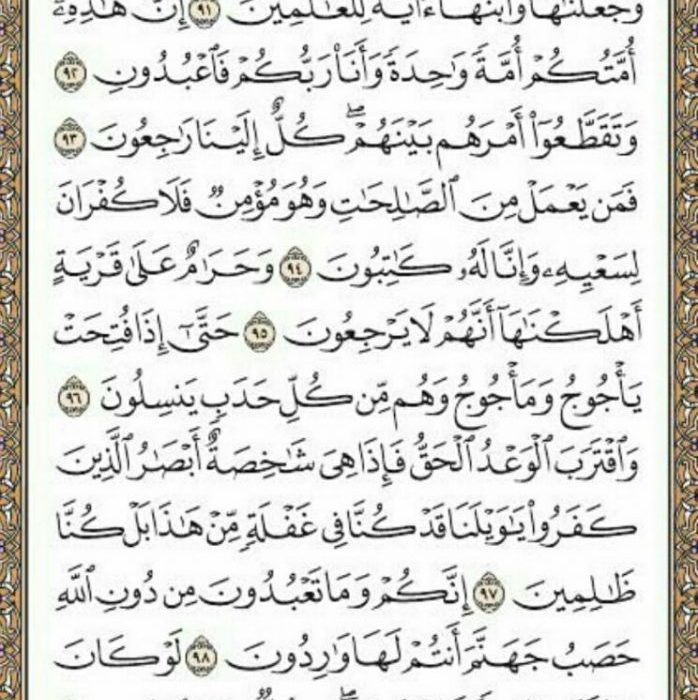 وَجَعَلْنَٰهَا وَٱبْنَهَآ ءَايَةً لِّلْعَٰلَمِينَ ٩١ إِنَّ هَٰذِهِۦٓ
أُمَّتُكُمْ أُمَّةً وَٰحِدَةً وَأَنَا۠ رَبُّكُمْ فَٱعْبُدُونِ ٩٢
وَتَقَطَّعُوٓا۟ أَمْرَهُم بَيْنَهُمْ ۖ كُلٌّ إِلَيْنَا رَٰجِعُونَ ٩٣
فَمَن يَعْمَلْ مِنَ ٱلصَّٰلِحَٰتِ وَهُوَ مُؤْمِنٌ فَلَا كُفْرَانَ
لِسَعْيِهِۦ وَإِنَّا لَهُۥ كَٰتِبُونَ ٩٤ وَحَرَٰمٌ عَلَىٰ قَرْيَةٍ
أَهْلَكْنَٰهَآ أَنَّهُمْ لَا يَرْجِعُونَ ٩٥ حَتَّىٰٓ إِذَا فُتِحَتْ
يَأْجُوجُ وَمَأْجُوجُ وَهُم مِّن كُلِّ حَدَبٍ يَنسِلُونَ ٩٦
وَٱقْتَرَبَ ٱلْوَعْدُ ٱلْحَقُّ فَإِذَا هِىَ شَٰخِصَةٌ أَبْصَٰرُ ٱلَّذِينَ
كَفَرُوا۟ يَٰوَيْلَنَا قَدْ كُنَّا فِى غَفْلَةٍ مِّنْ هَٰذَا بَلْ كُنَّا
ظَٰلِمِينَ ٩٧ إِنَّكُمْ وَمَا تَعْبُدُونَ مِن دُونِ ٱللَّهِ
حَصَبُ جَهَنَّمَ أَنتُمْ لَهَا وَٰرِدُونَ ٩٨ لَوْ كَانَ